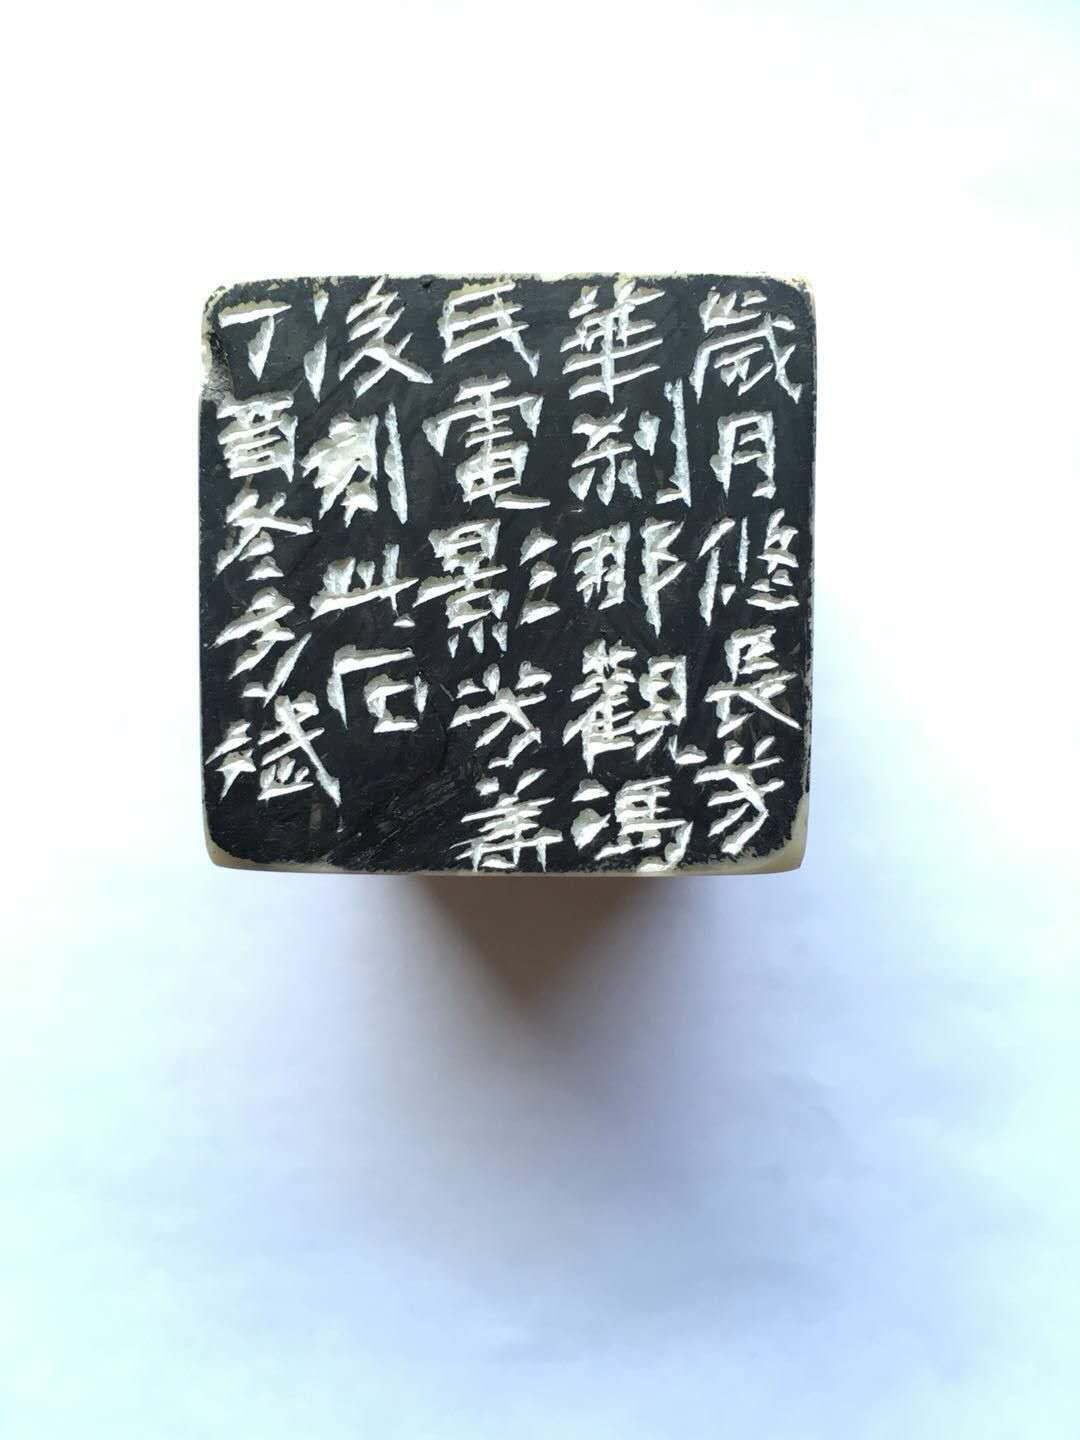 歲月悠長芳
華刹那觀馮
氏電影芳華
後刻此石
丁酉冬斌